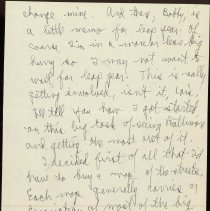 change mine. And then, Bobby, is
a little memo for leap year. Of
course I'm in a hurry
hurry so I may not want to
wait for leap year. This is really
getting involved, isn't it, Lois.
I'll tell you how I got started
on this big task of seeing Baltimore
and getting the most out of it.
I decided first of all that I'd
have to buy a map of the streets.
Each map generally carries a
of most of the big